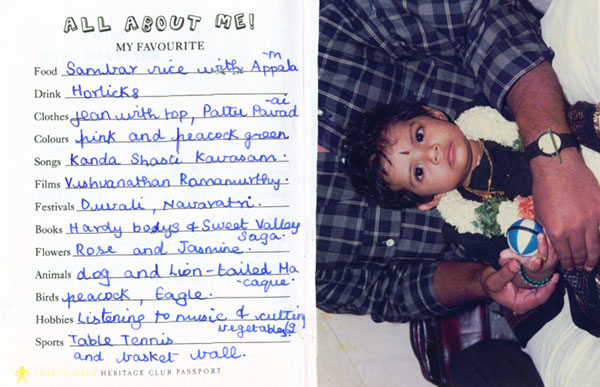 ALL ABOUT ME!
MY FAVOURITE
Food Sambar rice with Appala-m
Drink Horlicks
Clothes jean with top, Pattu Pavad-ai
Colours pink and peacock green
Songs Kanda Shasti Kavasam.
Films Vishvanathan Ramamurthy.
Festivals Diwali, Navaratri.
Books Hardy bodys & Sweet Valley
Saga.
Flowers Rose and Jasmine.
Animals dog and Lion-tailed Ma
-caque.
Birds peacock, Eagle.
Hobbies Listening to music & cutting
vegetables
Sports Table Tennis
and basket ball.
HERITAGE CLUB PASSPORT